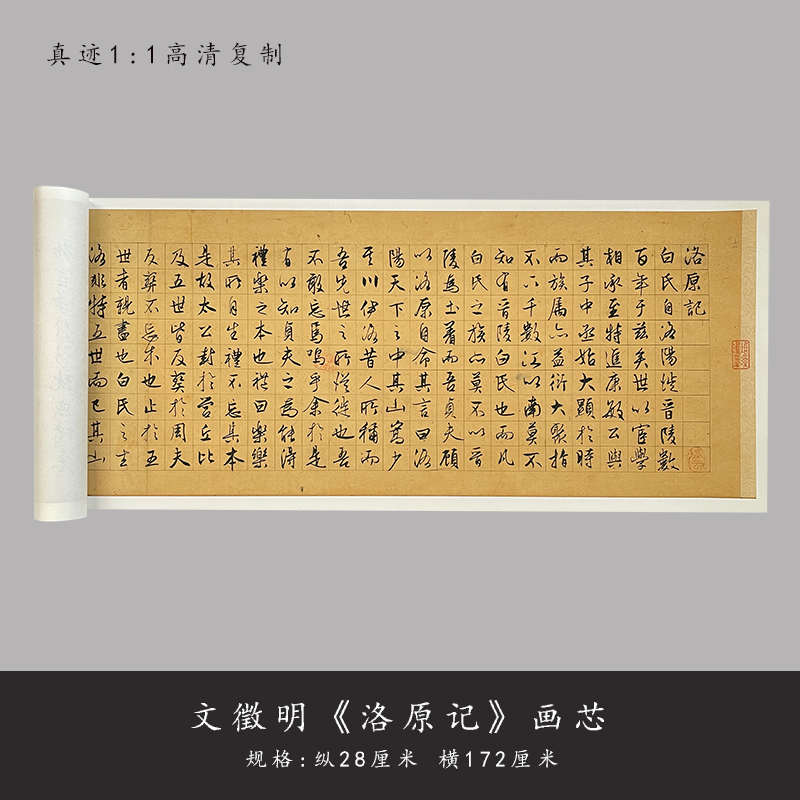 真迹1:1高清复制
洛原記
白氏自洛陽徙晉陵數
百年于茲矣世以宦學
相承至特進康敏公與
其子中丞始大顯於時
而族屬亦益衍大聚指
不下千數江以南莫不
知有晉陵白氏也而凡
白氏之族亦莫不以晉
陵為土著而吾貞夫顧
以洛原自命其言曰洛
陽天下之中其山嵩少
其川伊洛昔人所稱而
吾先世之所從徙也吾
不敢忘焉嗚乎余於是
有以知貞夫之為能得
禮樂之本也禮曰樂樂
其所自生禮不忘其本
是故太公封於營丘比
及五世皆反葬於周夫
反葬不忘本也止於五
世者親盡也白氏之去
洛非特五世而已其山
文徵明《洛原记》画芯
规格:纵28厘米 横172厘米